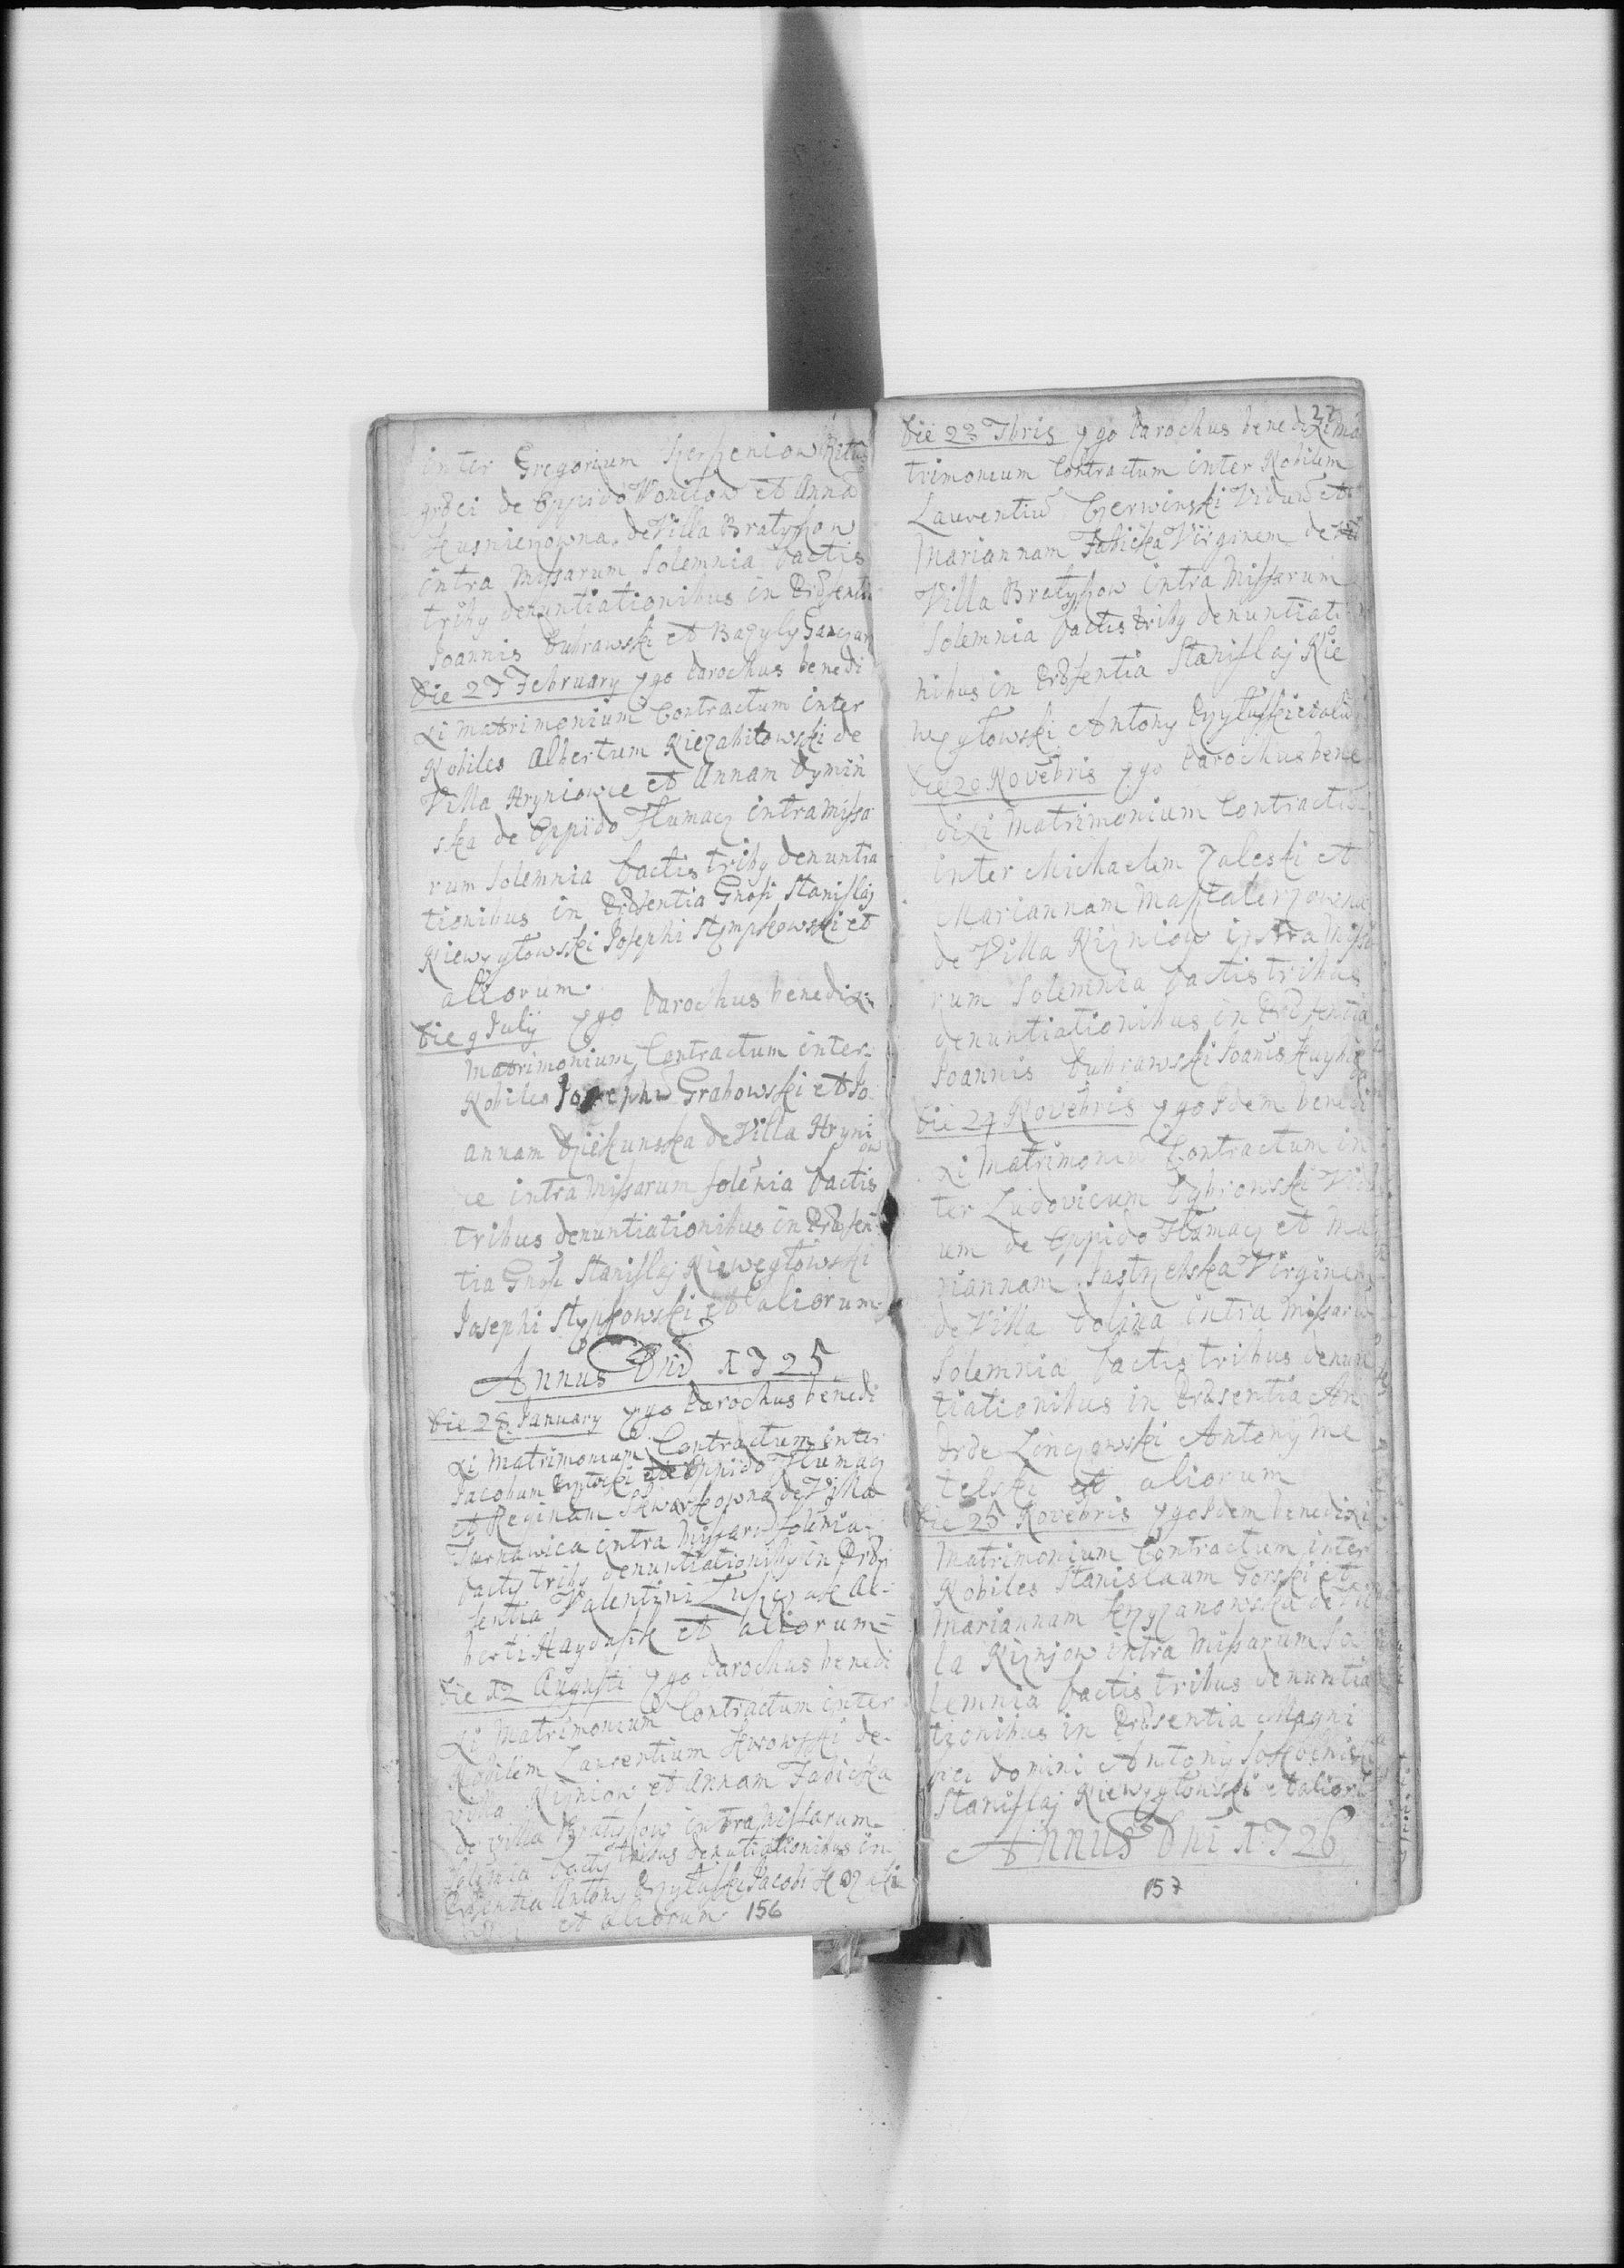 inter Gregorium Herheniow Ritus
grӕci de Oppido Wonilow et Anna
Husnierowna de Villa Bratyszow
intra Missarum Solemnia factis
tribg denuntiationibus in Prӕsentia
Joannis Dubrawski et Bazyly Ganczarz
Die 27 February Ego Parochus benedi
xi matrimonium Contractum inter
Nobiles Albertum Niezabitowski de
Villa Hryniowce et Annam Dymin
ska de Oppido Tłumacz intra Missa
rum Solemnia factis tribg denuntia
tionibus in Prӕsentia Gnosi Stanislaj
Niewęgłowski Josephi Stempkowski et
aliorum.
Die 9 Julij Ego Parochus benedixi
Matrimonium Contractum inter
Nobiles Josephū Grabowski et Jo
annam Dziekunska de Villa Hryni
ow
ce intra Missarum solēnia factis
tribus denuntiationibus in Prӕsen
tia Gnosi Stanislaj Niewęgłowski
Josephi Stępkowski et aliorum
Annus Dni 1725
Die 28 January Ego Parochus benedi
xi Matrimonium Contractum inter
Jacobum de Oppido Tłumacz
et Reginam Skwarkowna de Villa
Tarnawica intra Missarū Solēnia
factis tribg denuntiationibg in Prӕ
sentia Valentini Łuszczak Al
berti Haydasik et aliorum
Die 12 Augusti Ego Parochus benedi
xi Matrimonium Contractum inter
Nobilem Laurentium de
Villa Niżniow et Annam Jabicka
de Villa Bratyszow intra Missarum
Solēnia factis tribus denūtiationibus in
Prӕsentia Antony Przyłuski Jacobi
et aliorum 156
27
Die 23 7bris Ego Parochus benedixi Ma
trimonium Contractum inter Nobilem
Laurentiū Czerwinski Viduū et
Mariannam Jabicka Virginem de
Villa Bratyszow intra Missarum
Solemnia factis tribg denuntiatio
nibus in Prӕsentia Stanislaj Nie
węgłowski Antony Przyłuski et aliorū
Die 20 Novēbris Ego Parochus bene
dixi Matrimonium Contractū
inter Michaelem Zaleski et
Mariannam Masztalerzowna
de Villa Niżniow intra Missa
rum Solemnia factis tribus
denuntiationibus in Prӕsentia
Joannis Dubrawski Joānis
Die 24 Novēbris Ego Idem benedi
xi Matrimoniū Contractum in
ter Ludovicum Dybrowski Vidu
um de Oppido Tłumacz et Ma
riannam Jastrzebska Virginem
de Villa Dolina intra Missarū
Solemnia factis tribus denun
tiationibus in Prӕsentia An
drӕ Linczowski Antony Me
telski et aliorum
Die 25 Novēbris Ego Idem benedixi
Matrimonium Contractum inter
Nobiles Stanislaum Gorski et
Mariannam Krzyzanowska de Vil
la Niżnjow intra Missarum So
lemnia factis tribus denuntia
tionibus in Prӕsentia Magni
fici Domini Antony
Stanislaj Niewęgłowski et aliorū
Annus Dni 1726
157